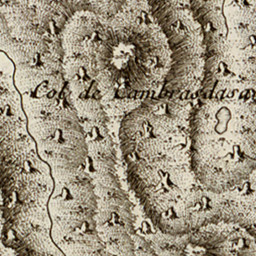 Col de Cambrasdas